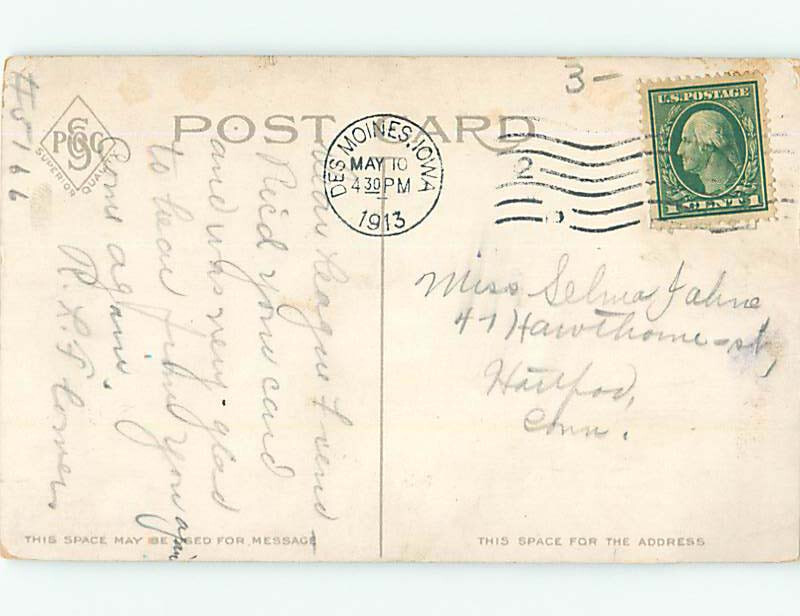 3-
# 5166
PCGC
SUPERIOR QUALITY
POST CARD
DES MOINES, IOWA
MAY 10
4 30 PM
1913
2
U.S. POSTAGE
1 CENT 1
League Friend -
Rec'd your card
and was very glad
to hear from you again
Come again.
R. L. Flowers
Miss Selma Jahne
47 Hawthorne-st,
Hartford,
Conn.
THIS SPACE MAY BE USED FOR MESSAGE
THIS SPACE FOR THE ADDRESS